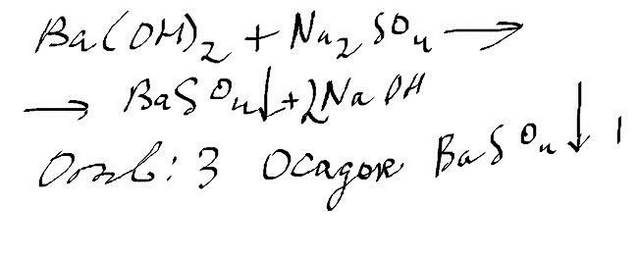 Ba(OH)₂ + Na₂SO₄ →
→ BaSO₄↓ + 2NaOH
Ответ: 3 осадок BaSO₄↓